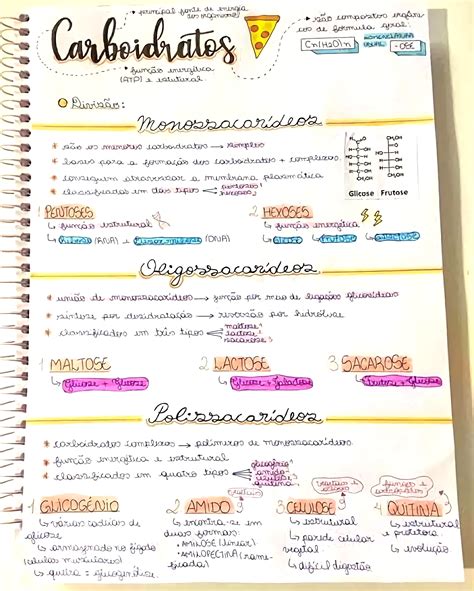 * principal fonte de energia
dos organismos
Carboidratos
* função energética
(ATP) e estrutural
* são compostos orgâni
cos de formula geral:
Cn(H2O)n
NOMENCLATURA
USUAL
-OSE
Divisão:
Monossacarídeos
* são os menores carboidratos → simples
* bases para a formação dos carboidratos + complexos
* conseguem atravessar a membrana plasmática
* classificados em dois tipos
pentoses
hexoses
Glicose Frutose
1 PENTOSES
↳ função estrutural
↳ Ribose (RNA) e (DNA)
2 HEXOSES
↳ função energética
↳ Glicose ↳ Frutose ↳ Galactose
Oligossacarídeos
* união de monossacarídeos → junção por meio de ligações glicosídicas
* síntese por desidratação → reversão por hidrólise
* classificados em três tipos
maltose 1
lactose 2
sacarose 3
1 MALTOSE
↳ Glicose + Glicose
2 LACTOSE
↳ Glicose + Galactose
3 SACAROSE
↳ Frutose + Glicose
Polissacarídeos
* carboidratos complexos → polímeros de monossacarídeos
* função energética e estrutural
* classificados em quatro tipos
glicogênio 1
amido 2
celulose 3
quitina 4
1 GLICOGÊNIO
↳ várias cadeias de
glicose
↳ armazenado no fígado
(células musculares)
↳ quebra: glicogenólise.
2 AMIDO
↳ encontra-se em
duas formas:
• AMILOSE (linear)
• AMILOPECTINA (rami-
ficada)
3 CELULOSE
↳ estrutural
↳ parede celular
vegetal.
↳ difícil digestão
fungos e
artrópodes
4 QUITINA
↳ estrutural
e protetora.
↳ evolução